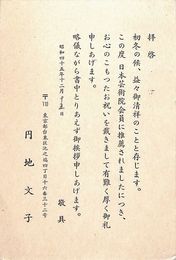 拝啓
初冬の候、益々御清祥のことと存じます。
この度 日本芸術院会員に推薦されましたにつき、
お心のこもつたお祝いを戴きまして有難く厚く御礼
申しあげます。
略儀ながら書中とりあえず御挨拶申しあげます。
敬具
昭和四十五年十二月十五日
〒110 東京都台東区池之端四丁目十六番三十二号
円地文子